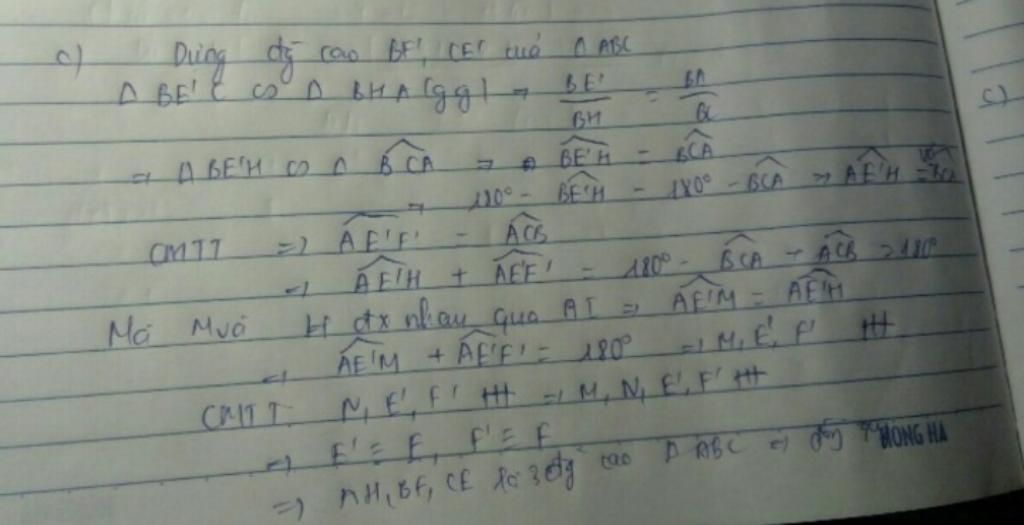 c) Dựng đg cao BF', CE' của Δ ABC
Δ BE'C ∽ Δ BHA (gg) ⇒ BE'/BH = BA/BC
c)
⇒ Δ BE'H ∽ Δ BCA ⇒ BE'H = BCA
⇒ 180° - BE'H = 180° - BCA ⇒ AE'H =
CMTT ⇒ AE'F' = ACB
⇒ AE'H + AE'F' = 180° - BCA + ACB = 180°
Mà M và H đx nhau qua AI ⇒ AE'M = AE'H
⇒ AE'M + AE'F' = 180° ⇒ M, E', F' tH
CMTT N, E', F' tH ⇒ M, N, E', F' tH
⇒ E' ≡ E, F' ≡ F
⇒ AH, BF, CE là 3 đg cao Δ ABC ⇒ đồng
HONG HA